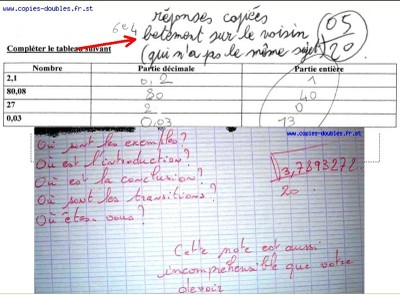 www.copies-doubles.fr.st
6e4
réponses copiées
bêtement sur le voisin
(qui n'a pas le même sujet)
05
20
Compléter le tableau suivant
Nombre Partie décimale Partie entière
2,1 0,2 1
80,08 80 40
27 2 0
0,03 0,03 13
www.copies-doubles.fr.st
Où sont les exemples?
Où est l'introduction?
Où est la conclusion?
Où sont les transitions?
Où êtes-vous?
√3,7893272
20
Cette note est aussi
incompréhensible que votre
devoir